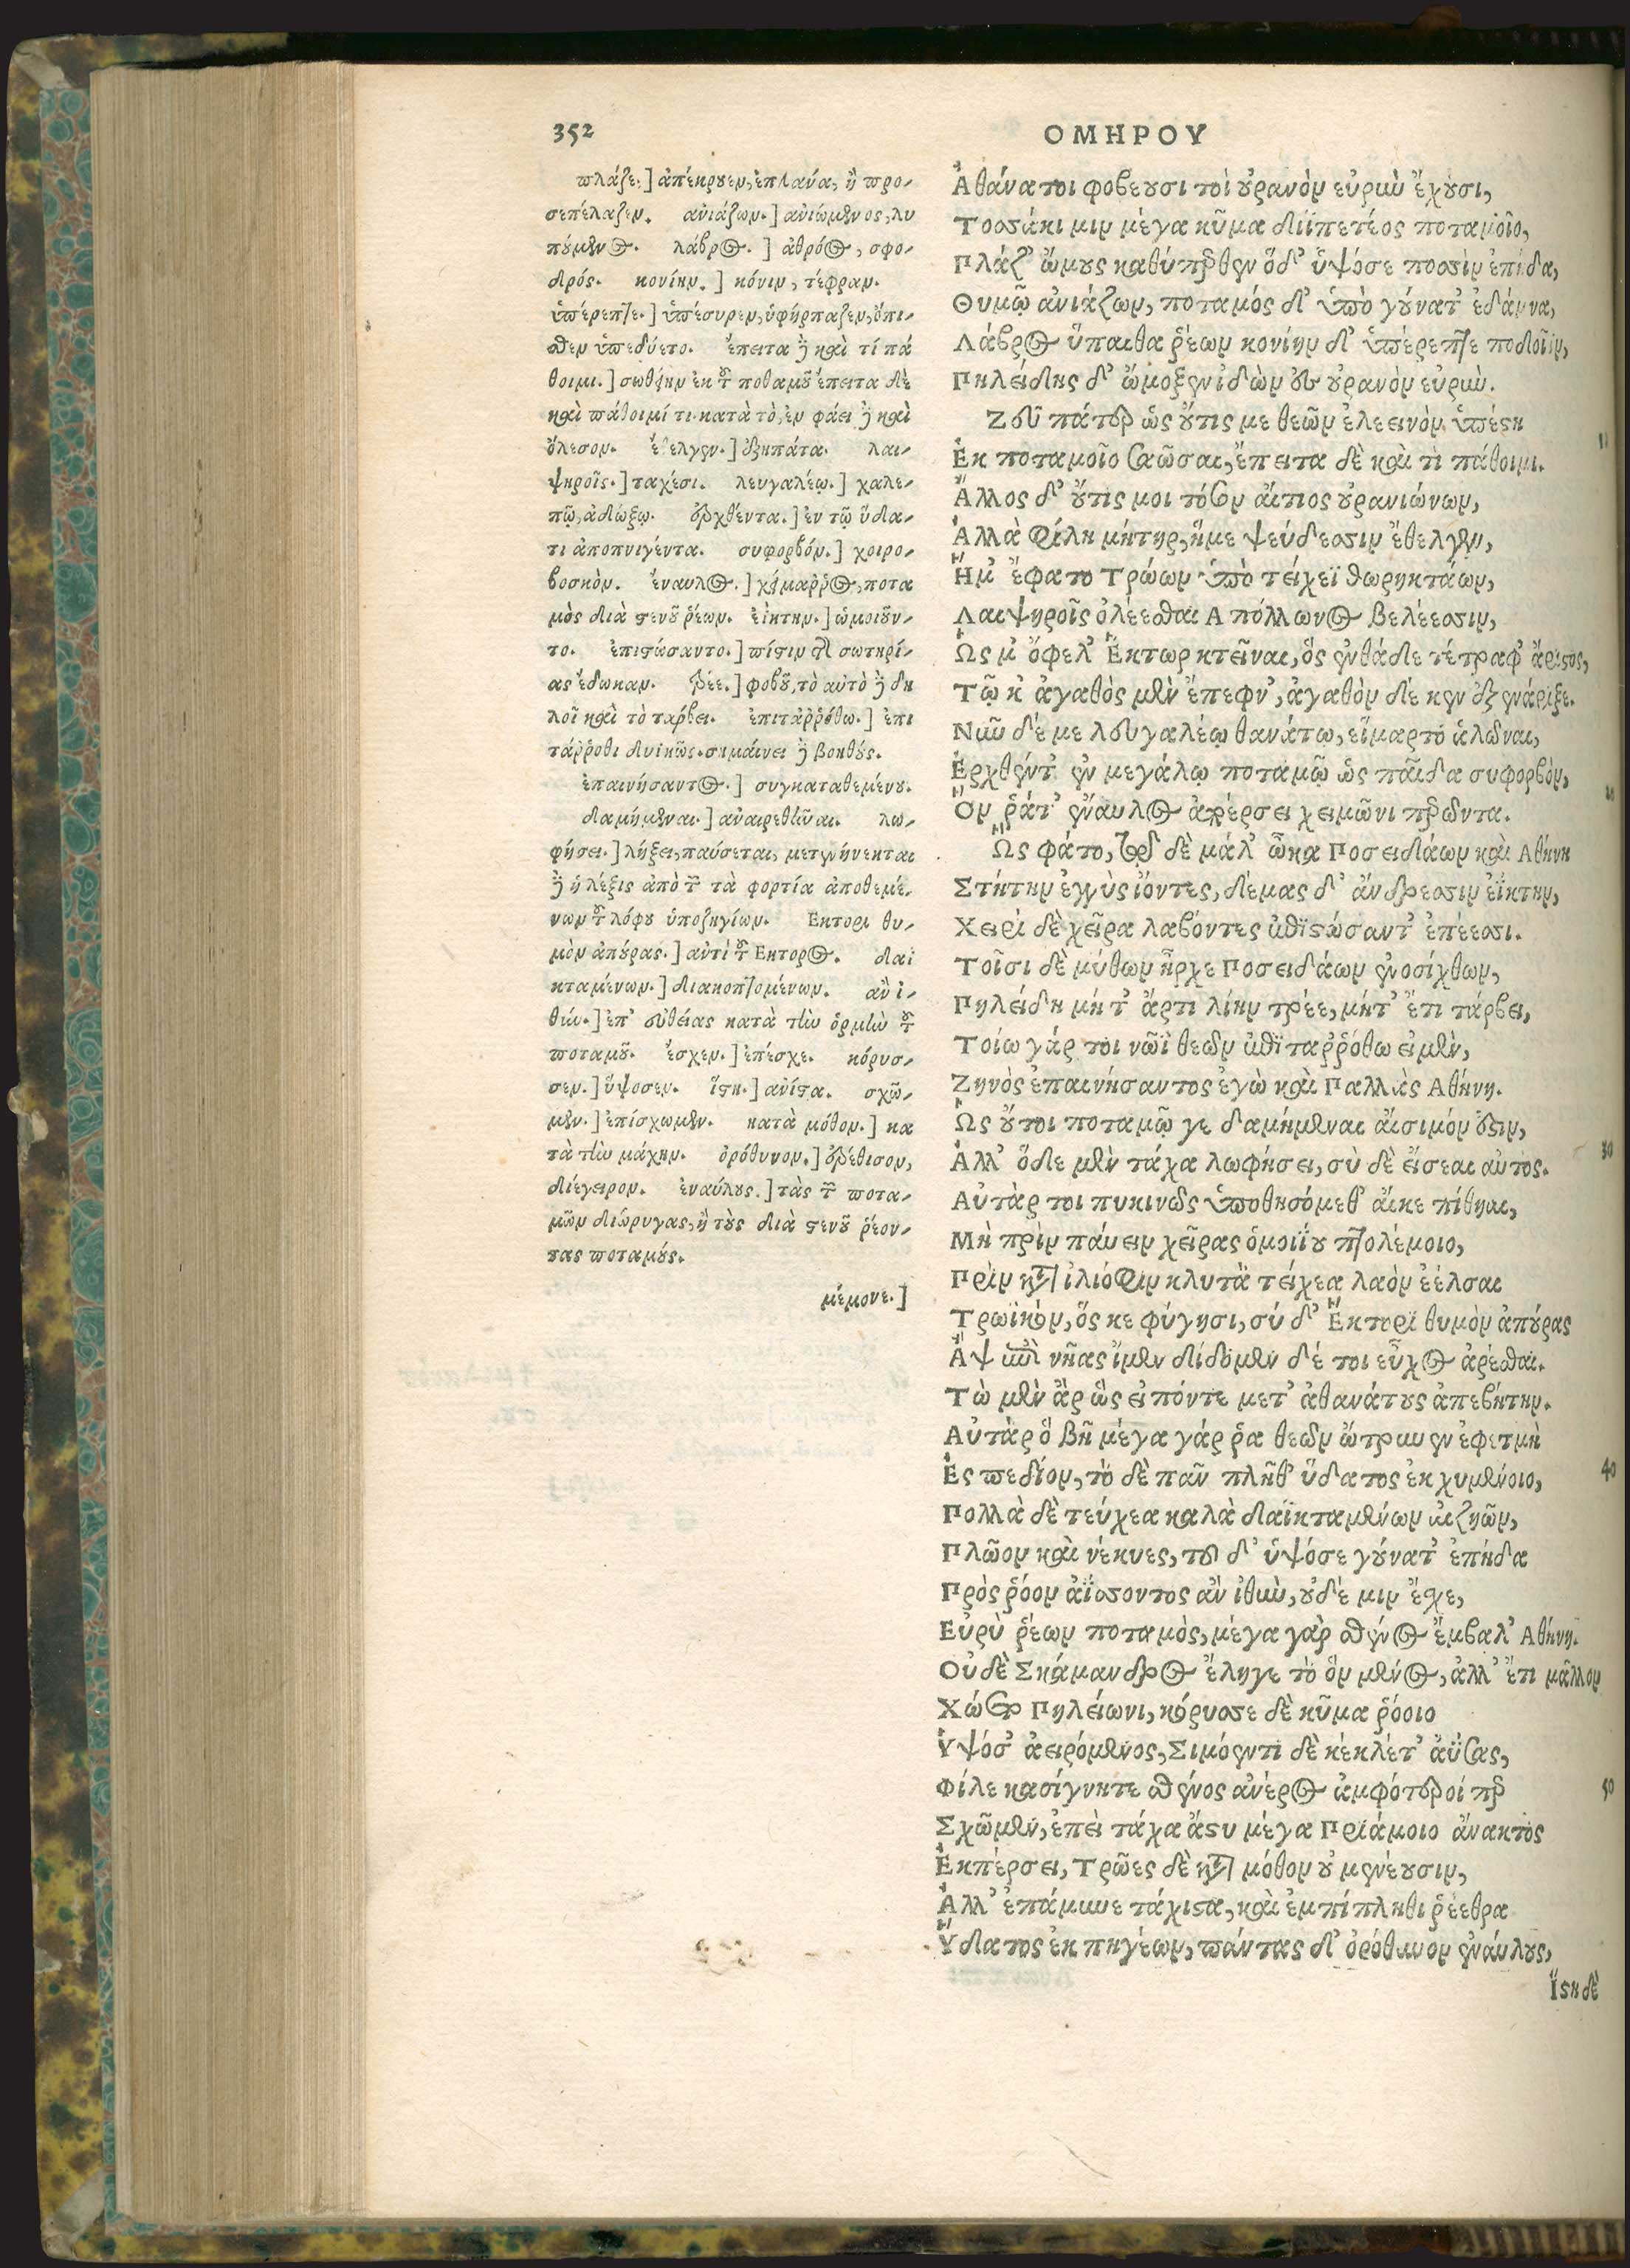 352
ΟΜΗΡΟΥ
πλάζε.] ἀπέκρουεν, ἐπλανᾶ, ἢ προ-
σεπέλαζεν. ἀνιάζων.] ἀνιώμενος, λυ
πούμενος. λάβρος.] ἀθρόος, σφο-
δρός. κονίην.] κόνιν, τέφραν.
ὑπέρεπτε.] ὑπέσυρεν, ὑφήρπαζεν, ὄπι-
σθεν ὑπεδύετο. ἔπειτα δὲ καὶ τί πά
θοιμι.] σωθείην ἐκ τοῦ ποταμοῦ ἔπειτα δὲ
καὶ πάθοιμί τι. κατὰ τὸ, ἐν φάει δὲ καὶ
ὄλεσον. ἔθελγεν.] ἐξηπάτα. λαι-
ψηροῖς.] ταχέσι. λευγαλέῳ.] χαλε-
πῷ, ἀδόξῳ. ἐρχθέντα.] ἐν τῷ ὕδα-
τι ἀποπνιγέντα. συφορβόν.] χοιρο-
βοσκὸν. ἔναυλος.] χείμαρρος, ποτα
μὸς διὰ στενοῦ ῥέων. ἐΐκτην.] ὡμοιοῦν-
το. ἐπιστώσαντο.] πίστιν περὶ σωτηρί-
ας ἔδωκαν. τρέε.] φοβοῦ, τὸ αὐτὸ δὲ δη
λοῖ καὶ τὸ τάρβει. ἐπιταρρόθω.] ἐπι
τάρροθοι δυϊκῶς. σημαίνει δὲ βοηθούς.
ἐπαινήσαντος.] συγκαταθεμένου.
δαμήμεναι.] ἀναιρεθῆναι. λω-
φήσει.] λήξει, παύσεται, μετενήνεκται
δὲ ἡ λέξις ἀπὸ τῶν τὰ φορτία ἀποθεμέ-
νων τοῦ λόφου ὑποζυγίων. Εκτορι θυ-
μὸν ἀπούρας.] ἀντὶ τοῦ Εκτορος. δαϊ
κταμένων.] διακοπτομένων. ἂν ἰ-
θύν.] ἐπ' εὐθείας κατὰ τὴν ὁρμὴν τοῦ
ποταμοῦ. ἔσχεν.] ἐπέσχε. κόρυσ-
σεν.] ὕψοσεν. ἵστη.] ἀνίστα. σχῶ-
μεν.] ἐπίσχωμεν. κατὰ μόθον.] κα
τὰ τὴν μάχην. ὀρόθυνον.] ἐρέθισον,
διέγειρον. ἐναύλους.] τὰς τῶν ποτα-
μῶν διώρυγας, ἢ τοὺς διὰ στενοῦ ῥέον-
τας ποταμούς.
μέμονε.]
Ἀθάνατοι φοβέουσι τοὶ οὐρανὸν εὐρὺν ἔχουσι,
Τοσσάκι μιν μέγα κῦμα διϊπετέος ποταμοῖο,
Πλάζ' ὤμους καθύπερθεν ὅδ' ὑψόσε ποσσὶν ἐπίδα,
Θυμῷ ἀνιάζων, ποταμός δ' ὑπὸ γούνατ' ἐδάμνα,
Λάβρος ὕπαιθα ῥέων κονίην δ' ὑπέρεπτε ποδοῖϊν,
Πηλείδης δ' ᾤμοξεν ἰδὼν εἰς οὐρανὸν εὐρύν.
Ζεῦ πάτερ ὡς οὔτις με θεῶν ἐλεεινὸν ὑπέστη
Ἐκ ποταμοῖο σαῶσαι, ἔπειτα δὲ καὶ τὶ πάθοιμι.
Ἄλλος δ' οὔτις μοι τόσον αἴτιος οὐρανιώνων,
Ἀλλὰ φίλη μήτηρ, ἥ με ψεύδεσσιν ἔθελγεν,
Ἥ μ' ἔφατο Τρώων ὑπὸ τείχεϊ θωρηκτάων,
Λαιψηροῖς ὀλέεσθαι Απόλλωνος βελέεσσιν,
Ὥς μ' ὄφελ' Ἕκτωρ κτεῖναι, ὃς ἐνθάδε τέτραφ' ἄριστος,
Τῷ κ' ἀγαθὸς μὲν ἔπεφν', ἀγαθὸν δέ κεν ἐξενάριξε.
Νῦν δέ με λευγαλέῳ θανάτω, εἵμαρτο ἁλῶναι,
Ἐρχθέντ' ἐν μεγάλῳ ποταμῷ ὡς παῖδα συφορβόν,
Ὅν ῥά τ' ἔναυλος ἀποέρσει χειμῶνι περῶντα.
Ὣς φάτο, τῷ δὲ μάλ' ὦκα Ποσειδάων καὶ Αθήνη
Στήτην ἐγγὺς ἰόντες, δέμας δ' ἄνδρεσσιν ἐΐκτην,
Χειρὶ δὲ χεῖρα λαβόντες ἐπιστώσαντ' ἐπέεσσι.
Τοῖσι δὲ μύθων ἦρχε Ποσειδάων ἐνοσίχθων,
Πηλείδη μήτ' ἄρτι λίην τρέε, μήτ' ἔτι τάρβει,
Τοίω γάρ τοι νῶϊ θεῶν ἐπιταρρόθω εἰμὲν,
Ζηνὸς ἐπαινήσαντος ἐγὼ καὶ Παλλὰς Αθήνη.
Ὡς οὔτοι ποταμῷ γε δαμήμεναι αἴσιμόν ἐστιν,
Ἀλλ' ὅδε μὲν τάχα λωφήσει, σὺ δὲ εἴσεαι αὐτὸς.
Αὐτάρ τοι πυκινῶς ὑποθησόμεθ' αἴκε πίθηαι,
Μὴ πρὶν παύειν χεῖρας ὁμοιΐου πτολέμοιο,
Πρὶν κατὰ ἰλιόφιν κλυτὰ τείχεα λαὸν ἐέλσαι
Τρωϊκὸν, ὅς κε φύγησι, σύ δ' Ἕκτορι θυμὸν ἀπούρας
Ἂψ ἐπὶ νῆας ἴμεν δίδομεν δέ τοι εὖχος ἀρέσθαι.
Τὼ μὲν ἄρ ὣς εἰπόντε μετ' ἀθανάτους ἀπεβήτην.
Αὐτὰρ ὁ βῆ μέγα γάρ ῥα θεῶν ὤτρυνεν ἐφετμὴ
Ἐς πεδίον, τὸ δὲ πᾶν πλῆθ' ὕδατος ἐκχυμένοιο,
Πολλὰ δὲ τεύχεα καλὰ δαϊκταμένων αἰζηῶν,
Πλῶον καὶ νέκυες, τοῦ δ' ὑψόσε γούνατ' ἐπήδα
Πρὸς ῥόον ἀΐσσοντος ἂν ἰθὺν, οὐδέ μιν ἔσχε,
Εὐρὺ ῥέων ποταμὸς, μέγα γὰρ σθένος ἔμβαλ' Αθήνη.
Οὐδὲ Σκάμανδρος ἔληγε τὸ ὃν μένος, ἀλλ' ἔτι μᾶλλον
Χώετο Πηλείωνι, κόρυσσε δὲ κῦμα ῥόοιο
Ὑψόσ' ἀειρόμενος, Σιμόεντι δὲ κέκλετ' ἀΰσας,
Φίλε κασίγνητε σθένος ἀνέρος ἀμφότεροί περ
Σχῶμεν, ἐπεὶ τάχα ἄστυ μέγα Πριάμοιο ἄνακτος
Ἐκπέρσει, Τρῶες δὲ κατὰ μόθον οὐ μενέουσιν,
Ἀλλ' ἐπάμυνε τάχιστα, καὶ ἐμπίπληθι ῥέεθρα
Ὕδατος ἐκ πηγέων, πάντας δ' ὀρόθυνον ἐναύλους,
Ἵστη δὲ
30
40
50